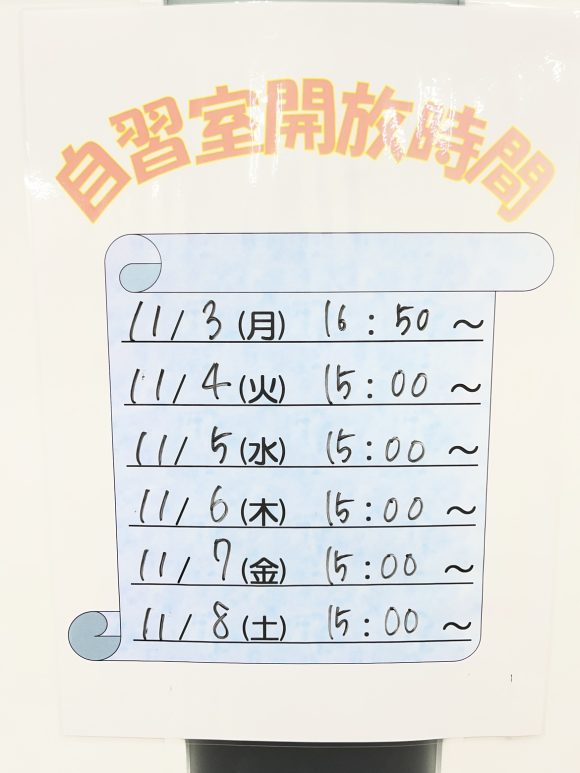 自習室開放時間
11/3(月) 16:50～
11/4(火) 15:00～
11/5(水) 15:00～
11/6(木) 15:00～
11/7(金) 15:00～
11/8(土) 15:00～
1